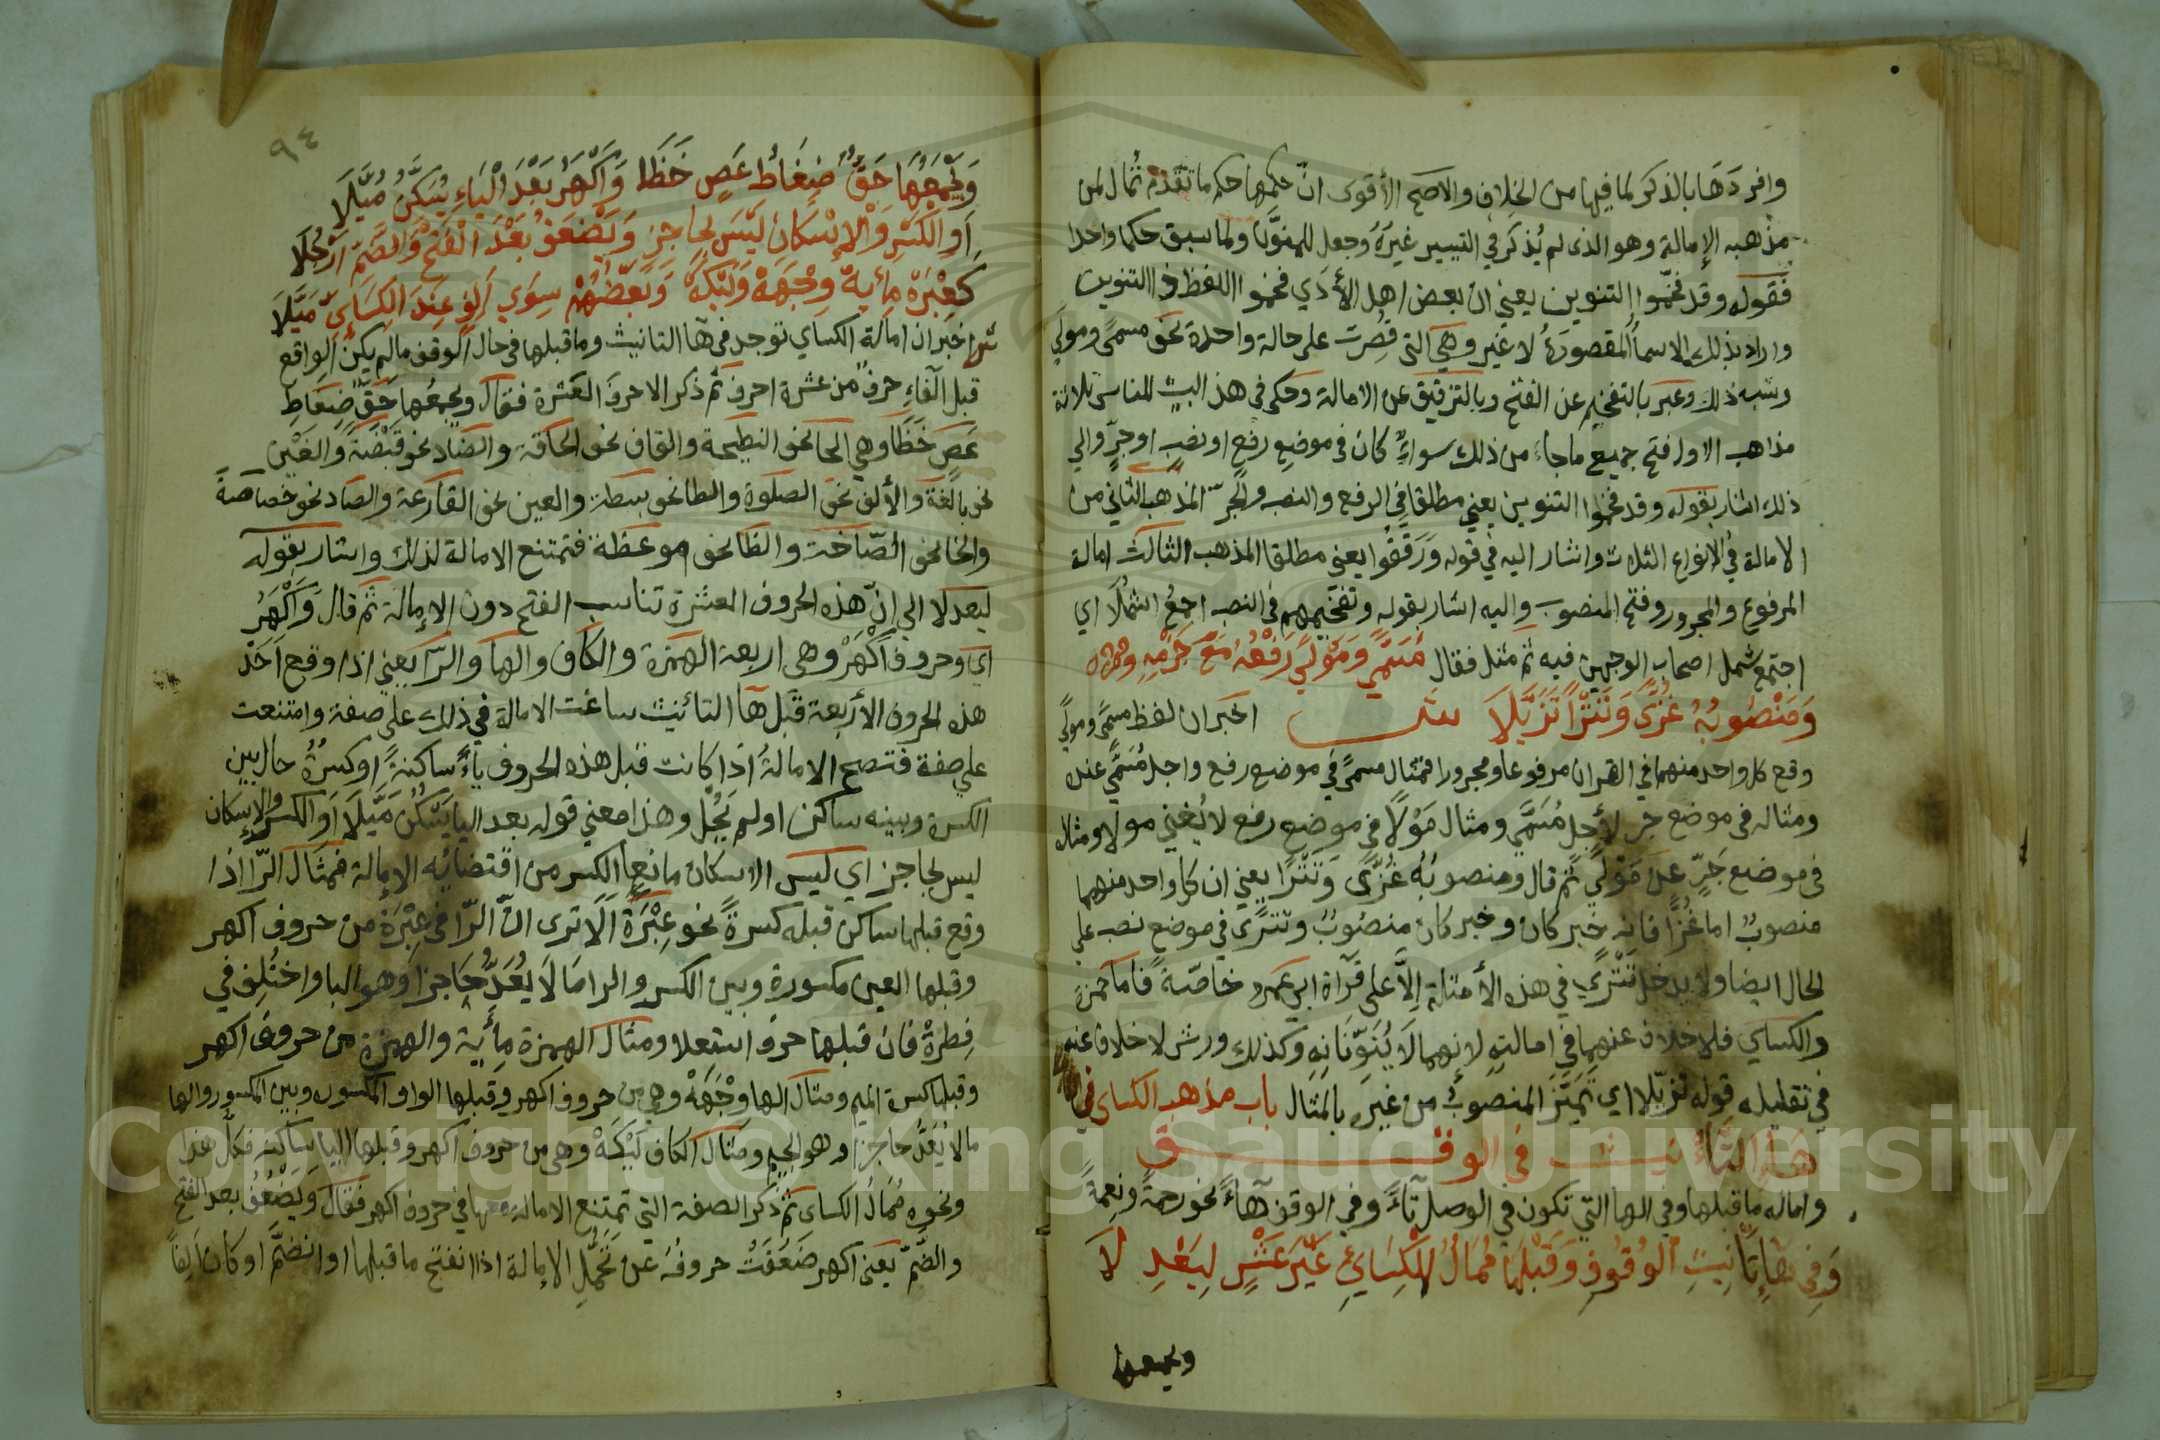 وافردها بالذكر لما فيها من الخلاف والاصح الأقوى انّ حكمها حكم ما تقدّم تُمال لمن
مذهبه الإمالة وهو الذى لم يُذكر في التيسير غيرَهُ وجعل للمنوّنا ولما سبق حكما واحدا
فقوله وقد فخّموا التنوين يعني ان بعض اهل الأدَي فخموا اللفظ ذا التنوين
واراد بذلك الاسماُ المقصورَةُ لا غير وهي التى قُصِرت على حالة واحدة نحو مسمًى ومولًي
وشبه ذلك وعبر بالتفخيم عن الفتح وبالترقيق عن الامالة وحكى في هذا البيت للناس ثلاثة
مذاهب الاول فتح جميع ما جاء من ذلك سواءً كان فى موضع رفع او نصب او جرّ والي
ذلك اشار بقوله وقد فخموا التنوين يعني مطلقا في الرفع والنصب والجرّ المذهب الثاني من
الامالة في الانواع الثلاث واشار اليه في قوله وَرَققُوا يعني مطلقا المذهب الثالث امالة
المرفوع والمجرور وفتح المنصوب واليه اشار بقوله وتفخيمهم في النصب اجمعُ اشمُلا اي
اجتمع شمل اصحاب الوجهين فيه ثم مثل فقال مُسَمًّي وَمَوْلًي رَفْعُهُ مَعْ جَرِّهِ
وَمَنْصُوبُهُ غُزًّى وَتَتْرًا تَزَيَّلاَ ش اخبر ان لفظ مسمًى ومولًي
وقع كل واحد منهما في القران مرفوعا ومجرورا فمثال مسمًى في موضع رفع واجل مُسَمًّي عنده
ومثاله فى موضع جر لأجل مُسَمًّي ومثال مَوْلاً في موضع رفع لا يُغني مولا ومثاله
في موضع جَرٍّ عن مَوْلًي ثمّ قال ومنصوبُهُ غُزًّى وَتَتْرًا يعني ان كل واحد منهما
منصوبٌ اما غُزًّا فانه خبر كان وخبر كان منصُوبٌ وتَتْرًى في موضع نصب على
الحال ايضا ولا يدخل تَتْرًي في هذه الأمثلة إلاّ على قرآة ابي عمرو خاصّة فاما حمزة
والكساي فلا خلاف عنهما في امالته لانهما لاَ يُنَوّنَانِهِ وكذلك ورش لا خلاف عنه
في تقليله قوله تزيّلا اي تميّزَ المنصوبُ من غيَرهِ بالمثال باب مذهب الكساى في
هاء التأنيث في الوقف
واماله ما قبلها وفي الها التي تكون في الوصل تآءً وفي الوقف هآءً نحو رحمةً ونِعمةً
وَفِي هَاءِ تَأْنِيثِ الوُقُوفِ وَقَبْلَهَا مُمَالُ الكِسَائِيِّ غَيْرَ عَشْرٍ لِيَعْدِ لاَ
ويجمعها
٩٤
وَيَجْمَعُهَا حَقٌّ ضِغَاطُ عَصٍ خَظَا وَأَكْهَرُ بَعْدَ الْيَاءِ يُسَكَّنُ مُيِّلَا
اَوِ الكَسْرِ وَالإِسْكَانُ لَيْسَ بِحَاجِزٍ وَيَضْعُفُ بَعْدَ الْفَتْحِ وَالضَّمِّ اَرْجُلَا
كَعِبْرَهْ مِأيَهْ وِجْهَهْ وَلَيْكَهْ وَبَعْضُهُمْ سِوَى اَلِفٍ عِنْدَ الكِسَائِيِّ مَيَّلَا
ش اخبر ان امالة الكساي توجد في هآ التانيث وما قبلها في حال الوقف ما لم يكن الواقع
قبل الهآءِ حرفٌ من عشرة احرف ثم ذكر الاحرف العَشْرة فقال ويجمعُها حَقٌّ ضِغَاطِ
عَصٍ خَظَا وهي الحا نحو النطيحة والقاف نحو الحاقة والضاد نحو قبْضَةً والغيْن
نحو بالغةً والألف نحو الصلوة والطا نحو بسطة والعين نحو القارعة والصاد نحو خصاصةً
والخا نحو الصّاخة والظا نحو موعظة فتمتنع الامالة لذلك واشار بقوله
ليعدلا الى انّ هذه الحروف العشرة تناسب الفتح دون الإمالة ثمّ قال وَأَكْهَرُ
اي وحروف أكْهَرْ وهى اربعة الهمزة والكاف والها والرّا يعني اذا وقع اَحَدُ
هذه الحروف الأربعة قبل هآ التأنيث ساغت الامالة في ذلك على صفة وامتنعت
علي صفة فتصح الامالةُ اذا كانت قبل هذه الحروف ياءً ساكنةً اوكسرةُ حال بين
الكسرة وبينه ساكن اولم يَحُلْ وهذا معني قوله بعد اليا يَسْكُنُ مَيَّلَا أوِ الكسْر والاِسكان
ليس بحاجز اي ليس الاسكان مانعٍا الكسر من اقتضائِه الإمالة فمثال الرّا اذا
وقع قبلها ساكن قبله كسرةً نحو عِبْرَةً اَلَا ترى انّ الرّا في عِبْرَة من حروف اكهر
وقبلها العين مكسورة وبين الكسر والرا مَا لَا يُعَدُّ حَاجزا وهو البا واختُلِف في
فِطرةْ فان قبلها حرف استعلا ومثال الهمزة مِأَية والهمزة من حروف اكهر
وقبلها كسرة الميم ومثال الها وِجْهَهْ وهي من حروف اكهر وقبلها الواو المكسوره وبين المكسور والها
ما لا يُعَدُّ حاجزا وهو الجيم ومثال الكاف لَيْكَهْ وهى من حروف اكهر وقبلها اليا ساكنة فكل هذا
ونحوه مُمَالُ الكساى ثمّ ذكر الصفة التي تمتنع الامالة معها في حروف اكهر فقال وَيَضْعُفُ بعد الفتح
والضّمّ يَعنى اكهر ضَعُفَتْ حروفُه عن تَحَمُّلِ الإمالة اذا انفتح ما قبلها او انضمّ او كان الِفاً
Copyright © King Saud University